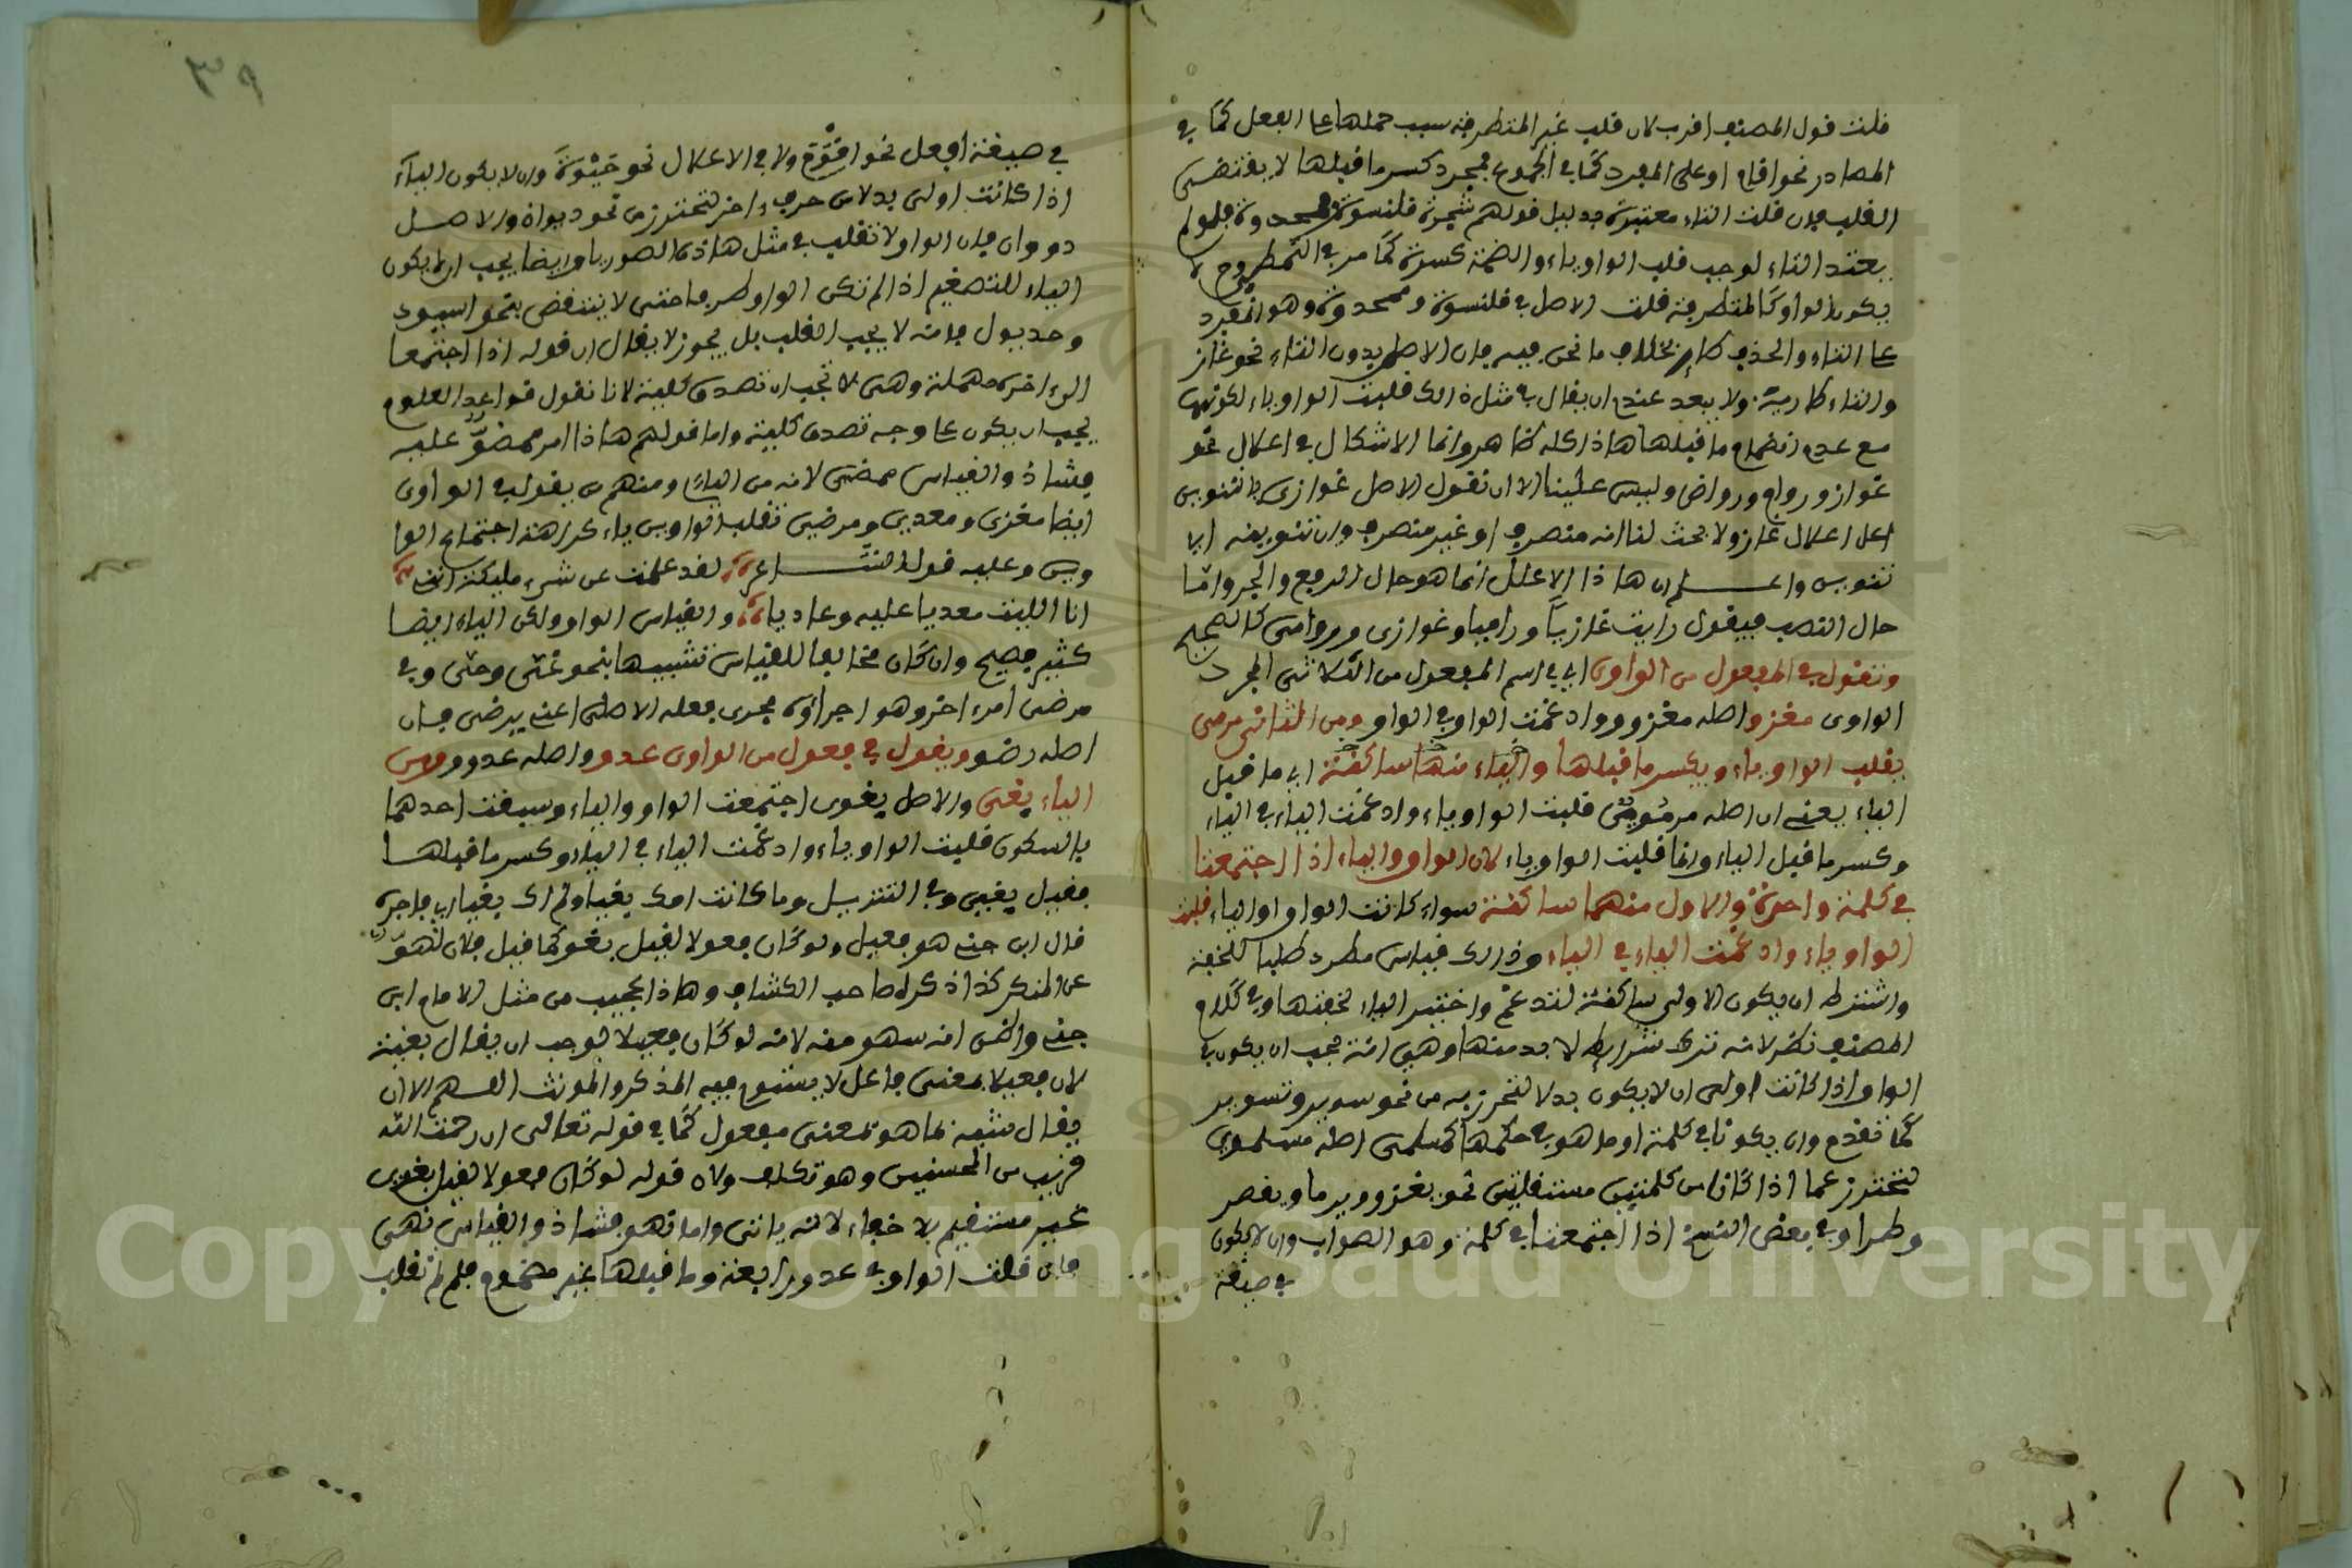 قلت قول المصنف اقرب لان قلب غير المتطرفة سبب حملها على الفعل كما في
المصادر نحو قيام او على المفرد كما في الجموع فمجرد كسر ما قبلها لا يقتضى
القلب فان قلت التاء معتبرة بدليل قولهم شجرة قلنسوة وقمحدوة فلو لم
يعتد التاء لوجب قلب الواو ياء والضمة كسرة كما مر في التمطى
يكون الواو كالمتطرفة قلت الاصل في قلنسوة وقمحدوة وهو المفرد
على التاء والحذف طار بخلاف ما نحن فيه فان الاصل بدون التاء نحو غاز
والتاء طارية ولا يبعد عندى ان يقال في مثل ذالك قلبت الواو ياء لكونها
مع عدم انضمام ما قبلها هاذا كله ظاهر وانما الاشكال في اعلال نحو
غواز ورواى ورواض وليس علينا الا ان نقول الاصل غوازى بالتنوين
اعل اعلال غاز ولا بحث لنا انه منصرف او غير منصرف وان تنوينه اى
تنوين واعلم ان هاذا الاعلال انما هو حال الرفع والجر واما
حال النصب فيقول رايت غازيا وراميا وغوازى وروامى كالصحيح
وتقول في المفعول من الواوى اى في اسم المفعول من الثلاثى المجرد
الواوى مغزو اصله مغزوو وادغمت الواو في الواو ومن الثانى مرمى
بقلب الواو ياء ويكسر ما قبلها والياء منها ساكنة اى ما قبل
الياء يعنى ان اصله مرموى قلبت الواو ياء وادغمت الياء في الياء
وكسر ما قبل الياء وانما قلبت الواو ياء لان الواو والياء اذا اجتمعتا
في كلمة واحدة والاول منهما ساكنة سواء كانت الواو او الياء قلبت
الواو ياء وادغمت الياء في الياء وذالك قياس مطرد طلبا للخفة
واشترط ان يكون الاولى ساكنة لتدغم واختير الياء لخفتها وفي كلام
المصنف نظر لانه ترك شرايط لا بد منها وهى انه يجب ان يكون في
الواو اذا كانت اولى ان لا يكون بدلا لتحرز به من نحو سوير وتسوير
كما تقدم وان يكونا في كلمة او ما هو في حكمها كمسلمى اصله مسلموى
لتحترز عما اذا كانا من كلمتين مستقلتين نحو يغزو يوما ويقصر
وطرا وفي بعض النسخ اذا اجتمعتا في كلمة وهو الصواب وان لا يكون
في صيغة
٣٩
في صيغة افعل نحو ايوم ولا في الاعلال نحو حيوة وان لا يكون الياء
اذا كانت اولى بدلا من حرف اخر لتحترز من نحو ديوان والاصل
دووان فان الواو لا تقلب في مثل هاذه الصور ياء وايضا يجب ان لا يكون
الياء للتصغير اذا لم تكن الواو طرفا حتى لا ينتقض بنحو اسيود
وجديول فانه لا يجب القلب بل يجوز لا يقال ان قوله اذا اجتمعا
الى اخره مهملة وهى لا تجب ان تصدق كلية لانا نقول قواعد العلوم
يجب ان يكون على وجه تصدق كلية واما قولهم هاذا امر ممضو عليه
فشاذ والقياس ممضى لانه من الياء ومنهم من يقول في الواوى
ايضا مغزى ومعدى ومرضى تقلب الواوين ياء كراهة اجتماع الوا
وين وعليه قول الشاعر لقد علمت عرسى مليكة اننى
انا الليث معديا عليه وعاديا والقياس الواو ولكن الياء ايضا
كثير فصيح وان كان مخالفا للقياس تشبيها بنحو عتى وجثى وفي
مرضى امرء اخر وهو اجراؤه مجرى فعله الاصلى اعنى يرضى فان
اصله رضو ويقول في فعول من الواوى عدو واصله عدوو ومن
الياء بغى والاصل بغوى اجتمعت الواو والياء وسبقت احدهما
بالسكون قلبت الواو ياء وادغمت الياء في الياء وكسر ما قبلها
فقيل بغى وفي التنزيل وما كانت امك بغيا ولم اك بغيا اى فاجرة
قال ابن جنى هو فعيل ولو كان فعولا لقيل بغو كما قيل فلان نهو
عن المنكر كذا ذكره صاحب الكشاف وهاذا عجيب من مثل الامام ابن
جنى واظن انه سهو منه لانه لو كان فعيلا لوجب ان يقال بغية
لان فعيلا بمعنى فاعل لا يستوى فيه المذكر والمونث اللهم الا ان
يقال شبه بما هو بمعنى مفعول كما في قوله تعالى ان رحمت الله
قريب من المحسنين وهو تكلف ولان قوله لو كان فعولا لقيل بغو
غير مستقيم بلا خفاء لانه يائى واما نهو فشاذ والقياس نهى
فان قلت الواو في عدو رابعة وما قبلها غير مضموم فلم لم تقلب
Copyright © King Saud University